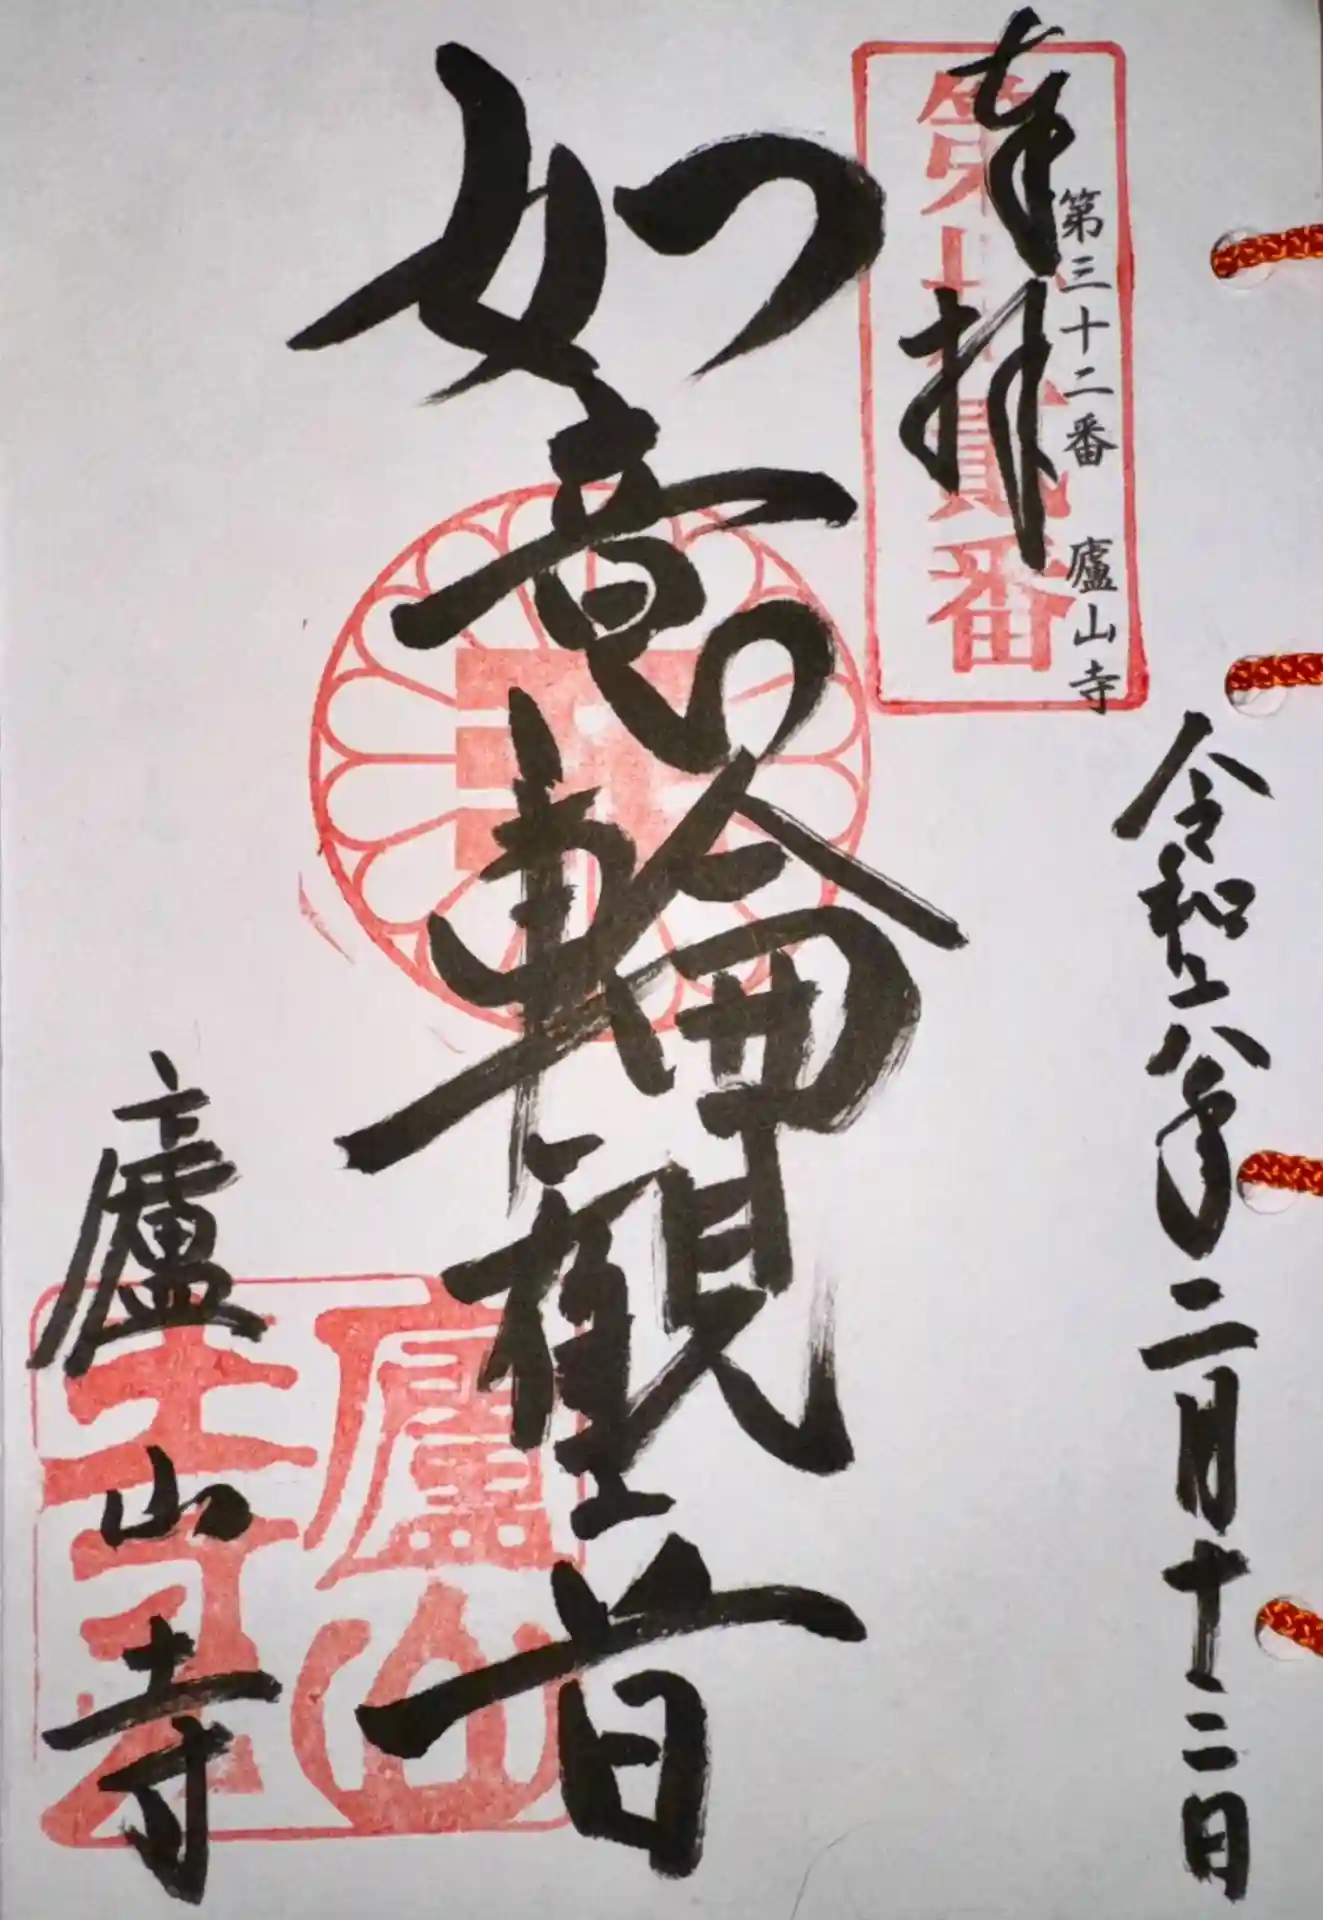 奉拝
第三十二番 廬山寺
第卅貳番
令和八年二月十二日
如意輪観音
廬山寺
廬山寺